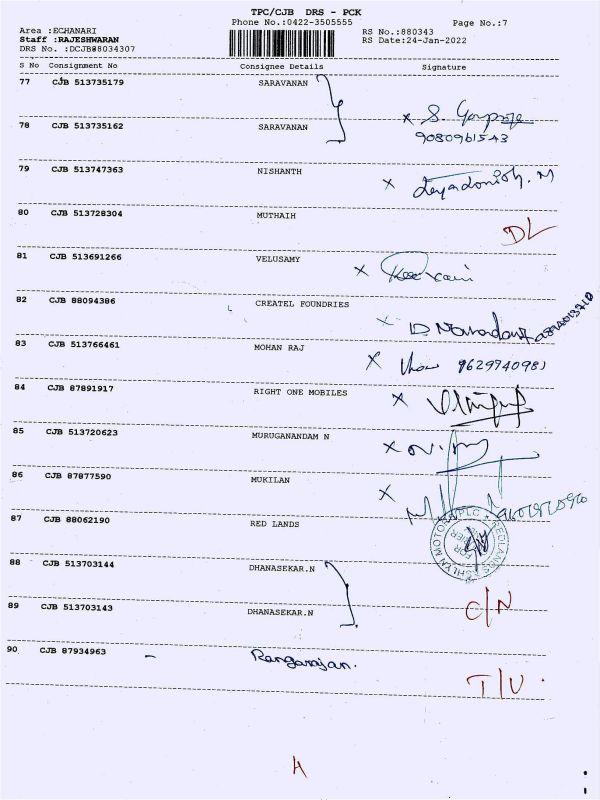 TPC/CJB DRS - PCK
Phone No.:0422-3505555
Page No.:7
Area :ECHANARI
RS No.:880343
Staff :RAJESHWARAN
RS Date:24-Jan-2022
DRS No. :DCJB88034307
S No Consignment No Consignee Details Signature
77 CJB 513735179 SARAVANAN
78 CJB 513735162 SARAVANAN x S.
9080961543
79 CJB 513747363 NISHANTH x
80 CJB 513728304 MUTHAIH DL
81 CJB 513691266 VELUSAMY x
82 CJB 88094386 CREATEL FOUNDRIES x
83 CJB 513766461 MOHAN RAJ x 9629740981
84 CJB 87891917 RIGHT ONE MOBILES x
85 CJB 513720623 MURUGANANDAM N x
86 CJB 87877590 MUKILAN x
87 CJB 88062190 RED LANDS
REDLANDS ASHLYN MOTORS PLC
FOR
88 CJB 513703144 DHANASEKAR.N
89 CJB 513703143 DHANASEKAR.N C/N
90 CJB 87934963 - Rangarajan. T/U
A